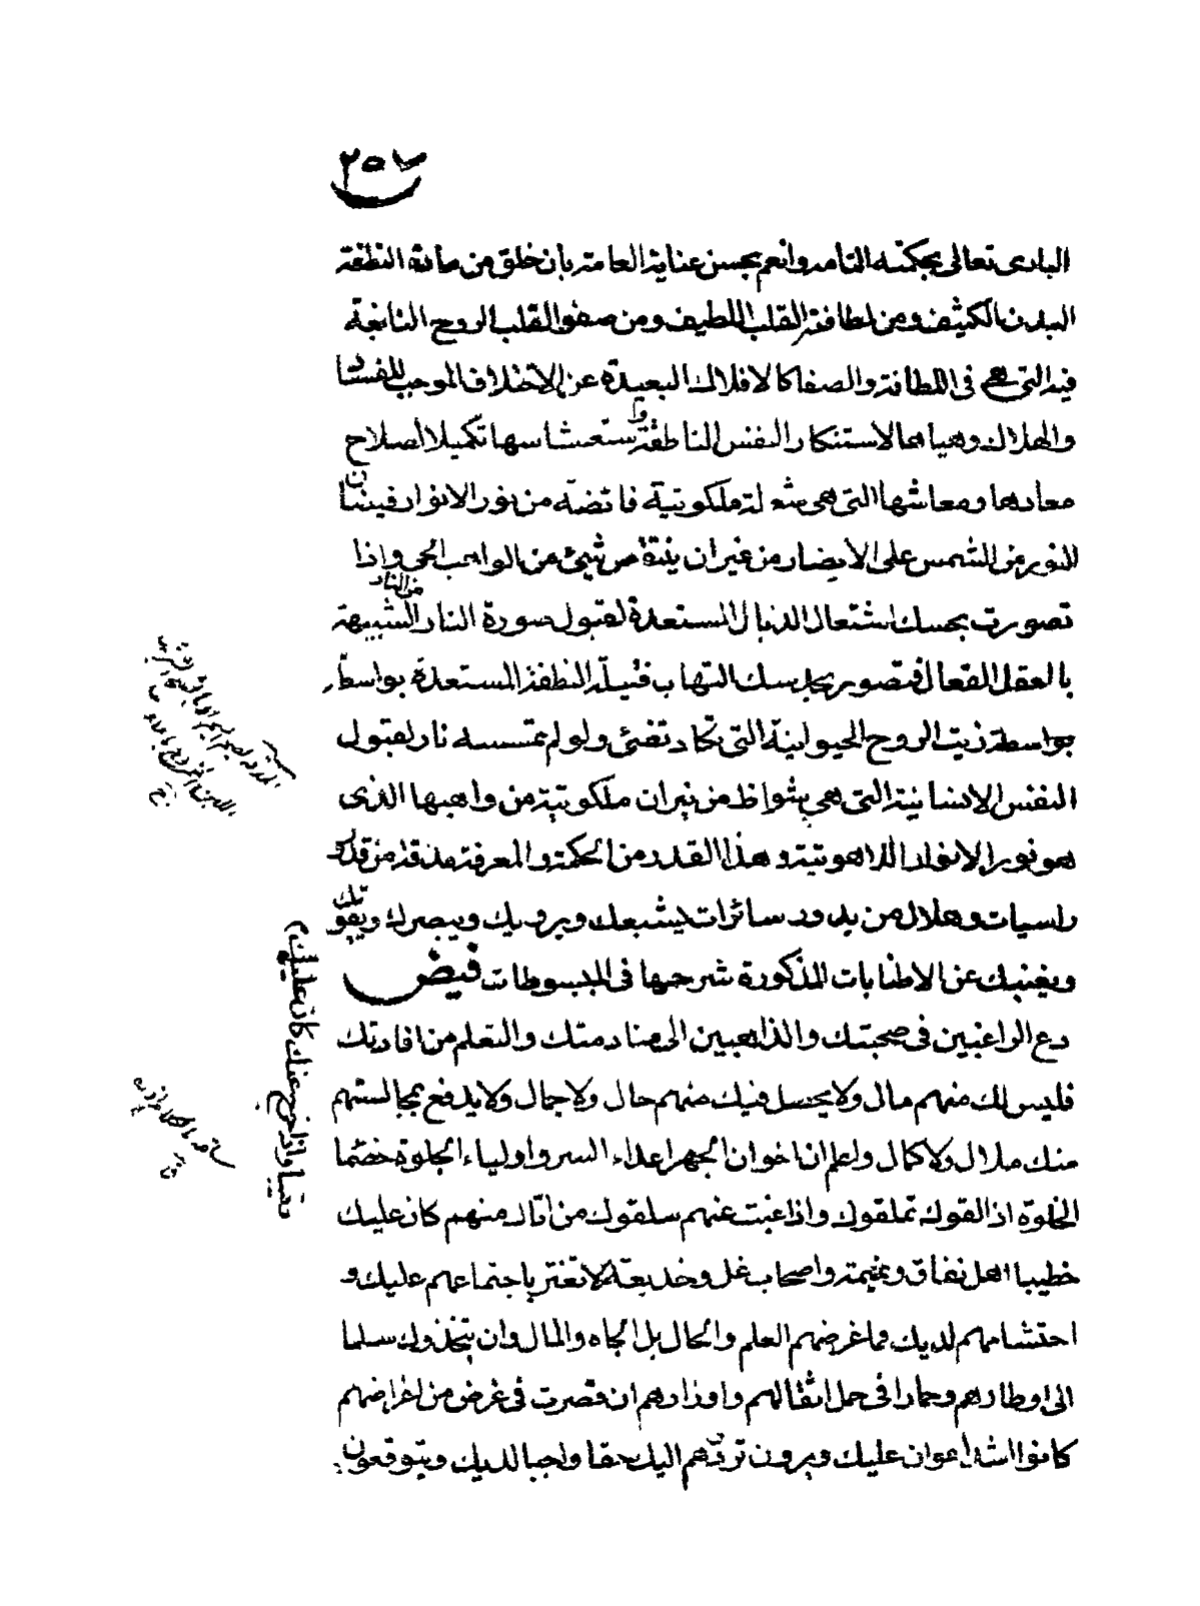 ٢٥٧
البارى تعالى بحكمته التامه وانعم بحسن عناية العامة بان خلق من مادة النطفة
البدن الكثيف ومن لطافة القلب اللطيف ومن صفو القلب الروح النابغة
فيه التى هى فى اللطافة والصفا كالافلاك البعيدة عن الاختلاف الموجب للفساد
والهلاك وهياهما لاستنكار النفس الناطقة واستعشاسها تكميلا لصلاح
معادها ومعاشها التى هى شعلة ملكوتية فائضة من نور الانوار فيضان
النور من الشمس على الابصار من غير ان ينتقص شيئ من الواهب الحى واذا
تصورت بحسك اشتعال الذبال المستعدة لقبول صورة النار من النار الشبيهة
بالعقل الفعال فتصور بحدسك التهاب فتيلة النطفة المستعدة بواسطة
بواسطة زيت الروح الحيوانية التى تكاد تضئ ولو لم تمسسه نار لقبول
النفس الانسانية التى هى شواظ من نيران ملكوتية من واهبها الذى
هو نور الانوار اللاهوتية وهذا القدر من الحكمة والمعرفة مذقة من قدور
راسيات وهلال من بدور سائرات ليشبعك ويرويك ويبصرك ويقويك
ويغنيك عن الاطنابات المذكورة شرحها فى المبسوطات فيض
دع الراغبين فى صحبتك والذاهبين الى منادمتك والتعلم من افادتك
فليس لك منهم مال ولا يحصل فيك منهم حال ولا جمال ولا يدفع بمجالستهم
منك ملال ولا كمال واعلم ان اخوان الجهر اعداء السر واولياء الجلوة خصما
الخلوة اذا لقوك تملقوك واذا غبت عنهم سلقوك من اتاك منهم كان عليك
رقيبا واذا خرج عنك كان عليك م
خطيبا اهل نفاق ونميمة واصحاب غل وخديعة لا تغتر باجتماعهم عليك و
احتشامهم لديك فما غرضهم العلم والحال بل الجاه والمال وان يتخذوك سلما
الى اوطارهم وحمارا فى حمل اثقالهم واوزارهم ان قصرت فى غرض من اغراضهم
كانوا اشد اعوان عليك ويرون ترددهم اليك حقا واجبا لديك ويتوقعون